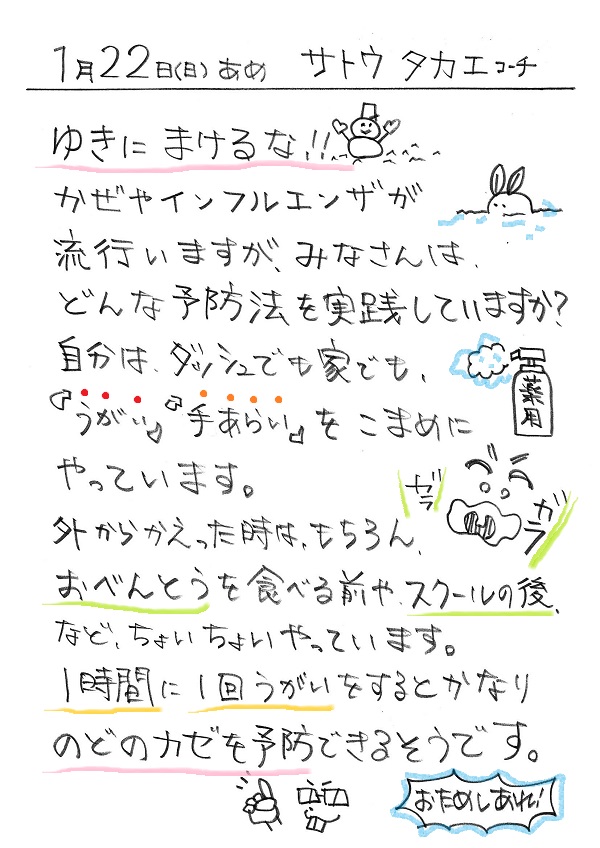 1月22日(日) あめ サトウ タカエ コーチ
ゆきに まけるな!!
かぜやインフルエンザが
流行いますが、みなさんは、
どんな予防法を実践していますか?
自分は、ダッシュでも家でも、
『うがい』『手あらい』を こまめに
やっています。
薬用
ガラ
ガラ
外からかえった時は、もちろん、
おべんとうを食べる前や、スクールの後、
など、ちょいちょいやっています。
1時間に1回うがいをするとかなり
のどのカゼを予防できるそうです。
おためしあれ!